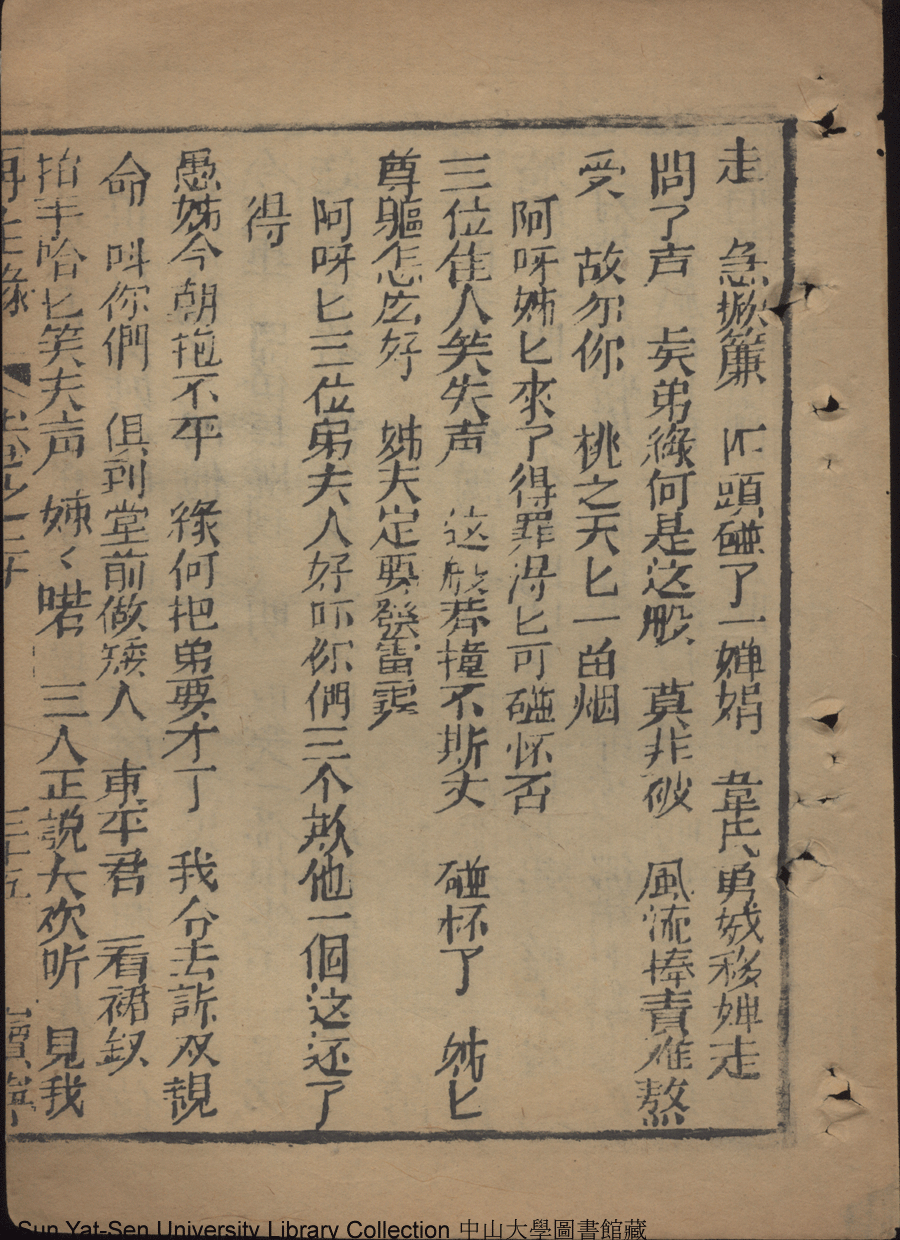 走 急掀簾 頭碰了一婵娟 韋氏勇娥移婵走
問了声 矣弟緣何是这般 莫非破 風流捧責难熬
受 故尔你 桃之夭匕一苗烟
阿呀姊匕來了得罪得匕可碰怀否
三位佳人笑失声 这般莽撞不斯文 碰杯了 姊匕
尊軀怎庅好 姊夫定要發雷霆
阿呀匕三位弟夫人好吓你們三个欺他一個这还了
得
愚姊今朝抱不平 緣何把弟耍才丁 我今去訴双親
命 叫你們 俱到堂前做矮人 東平君 一看裙釵
拍手哈匕笑夫声 姊〻喏 三人正說大欢听 見我
再生緣 卷之二十 三十五 寶寧
Sun Yat-Sen University Library Collection 中山大學圖書館藏